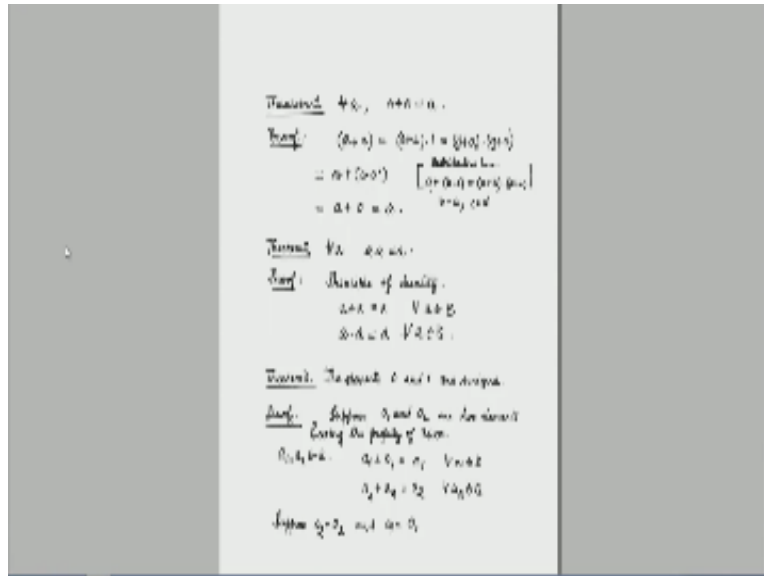 Theorem 1. ∀ a, a + a = a.
Proof: (a + a) = (a+a).1 = (a+a).(a+a')
= a + (a.a') [Distributive law
= a + 0 = a. a + (b.c) = (a+b).(a+c)
b = a, c = a'
Theorem ∀a a.a = a.
Proof: Principle of duality.
a + a = a ∀ a ∈ B
a . a = a ∀ a ∈ B.
Theorem. The elements 0 and 1 are unique.
Proof. Suppose 0₁ and 0₂ are two elements
having the property of zero.
a₁ + 0₁ = a₁ ∀ a₁ ∈ B
a₂ + 0₂ = a₂ ∀ a₂ ∈ B
Suppose a₁ = 0₂ and a₂ = 0₁